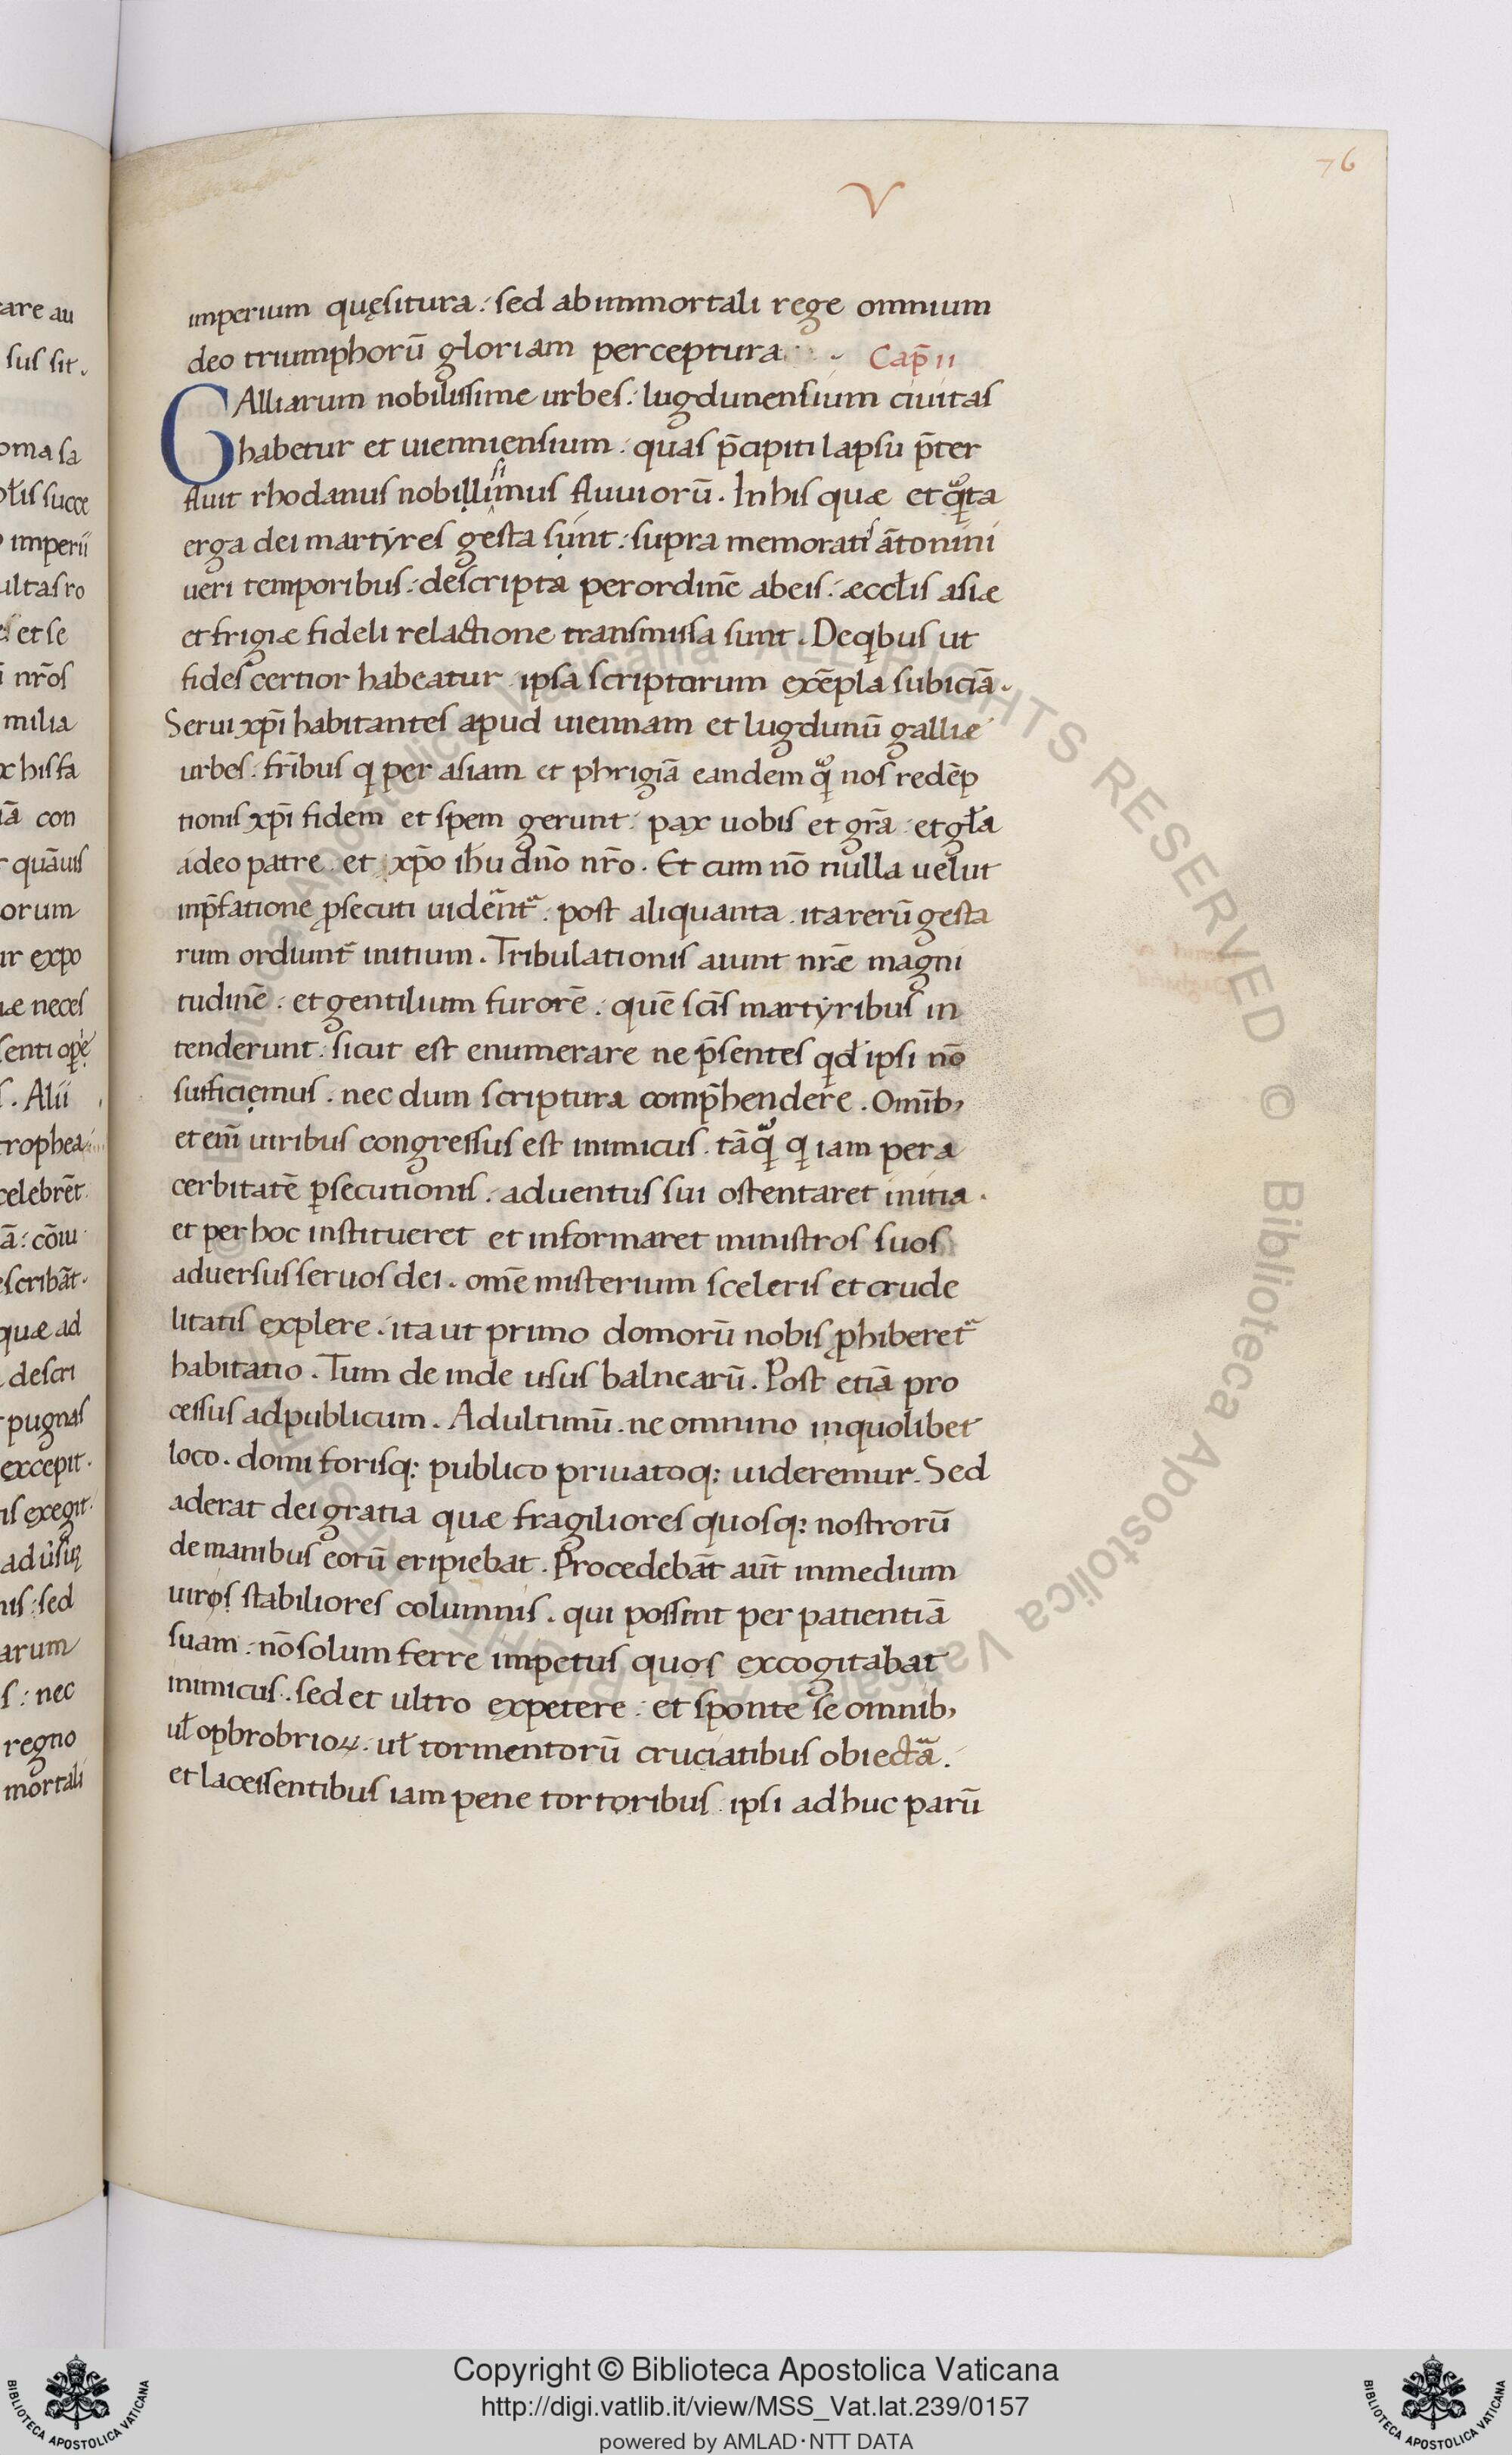 76
V
imperium quęsitura : sed ab immortali rege omnium
deo triumphorū gloriam perceptura. Cap̄ ii
GAlliarum nobilissime urbes : lugdunensium ciuitas
habetur et uienniensium : quas p̄cipiti lapsu p̄ter
fluit rhodanus nobillimus fluuiorū . In his quæ et qͦta
erga dei martyres gesta sunt : supra memoratis ātonini
ueri temporibus : descripta per ordinē ab eis : æccłis asiæ
et frigiæ fideli relactione transmissa sunt . De qibus ut
fides certior habeatur ipsa scriptorum exēpla subiciā .
Serui xp̄i habitantes apud uiennam et lugdunū galliæ
urbes : fr̄ibus q per asiam et phrigiā eandem qͦ nos redēp
tionis xp̄i fidem et spem gerunt : pax uobis et gr̄a : et gła
a deo patre . et xp̄o ih̄u dn̄o nr̄o . Et cum nō nulla uelut
in p̄fatione ꝓsecuti uidēnt᷑ . post aliquanta . ita rerū gesta
rum ordiunt᷑ initium . Tribulationis aiunt nr̄æ magni
tudinē : et gentilium furorē : quē sc̄is martyribus in
tenderunt : sicut est enumerare ne p̄sentes qđ ipsi nō
sufficięmus . nec dum scriptura comp̄hendere . Omīb;
et em̄ uiribus congressus est inimicus . tāqͦ q iam per a
cerbitatē ꝑsecutionis . aduentus sui ostentaret initia .
et per hoc institueret et informaret ministros suos
aduersus seruos dei . om̄e misterium sceleris et crude
litatis explere . ita ut primo domorū nobis ꝓhiberet᷑
habitatio . Tum de inde usus balnearū . Post etiā pro
cessus ad publicum . Ad ultimū . ne omnino in quolibet
loco . domi forisq; publico priuatoq; uideremur . Sed
aderat dei gratia quæ fragiliores quosq; nostrorū
de manibus eorū eripiebat . Procedebāt aūt in medium
uiros stabiliores columnis . qui possent per patientiā
suam : nō solum ferre impetus quos excogitabat
inimicus . sed et ultro expetere : et sponte se omnib;
uł opbrobrioꝝ . uł tormentorū cruciatibus obiectā .
et lacessentibus iam pene tortoribus ipsi ad huc parū
Copyright © Biblioteca Apostolica Vaticana
http://digi.vatlib.it/view/MSS_Vat.lat.239/0157
powered by AMLAD·NTT DATA